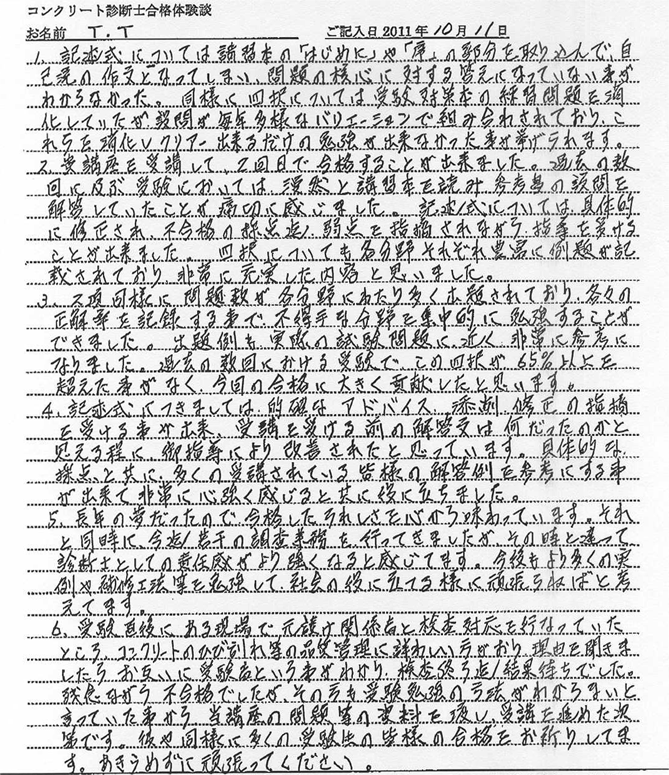 コンクリート診断士合格体験談
お名前 T.T ご記入日 2011年 10月 11日
1. 記述式については講習本の「はじめに」や「序」の部分を取り込んで、自
己流の作文となってしまい、問題の核心に対する答えになっていない事が
わからなかった。同様に四択については受験対策本の練習問題を消
化していたが設問が毎年多様なバリエーションで組み合わされており、こ
れらを消化しクリアー出来るだけの勉強が出来なかった事が挙げられます。
2. 受講座を受講して、2回目で合格することが出来ました。過去の数
回に及ぶ受験においては、漫然と講習本を読み、参考書の設問を
解答していたことが痛切に感じました。記述式については、具体的
に修正され、不合格の採点迄、弱点を指摘されながら、指導を受ける
ことが出来ました。四択についても各分野それぞれ豊富に例題が記
載されており、非常に充実した内容と思いました。
3. 2項同様に問題数が各分野にわたり多く出題されており、各々の
正解率を記録する事で、不得手な分野を集中的に勉強することが
できました。出題例も実際の試験問題に近く、非常に参考に
なりました。過去の数回における受験で、この四択が65%以上を
超えた事がなく、今回の合格に大きく貢献したと思います。
4. 記述式につきましては、的確なアドバイス、添削、修正の指摘
を受ける事が出来、受講を受ける前の解答文は何だったのかと
思える程に、御指導により改善されたと思っています。具体的な
採点と共に、多くの受講されている皆様の解答例を参考にする事
が出来て、非常に心強く感じると共に役に立ちました。
5. 長年の夢だったので、合格したうれしさを心から味わっています。それ
と同時に、今迄、若干の調査業務を行ってきましたが、その時と違って
診断士としての責任が強くなると感じてます。今後もより多くの実
例や補修工法等を勉強して、社会の役に立てる様に頑張らねばと考
えてます。
6. 受験直後にある現場で、元請け関係者と検査対応を行なっていた
ところ、コンクリートのひび割れ等の品質管理に詳しい方がおり、理由を聞きま
したらお互いに受験者という事がわかり、検査終了迄、結果待ちでした。
残念ながら不合格でしたが、その方も受験勉強の方法がわからないと
言っていた事から、当講座の問題等の資料を渡し、受講を進めた次
第です。後や同様に多くの受験生の皆様の合格をお祈りしてま
す。あきらめずに頑張ってください。